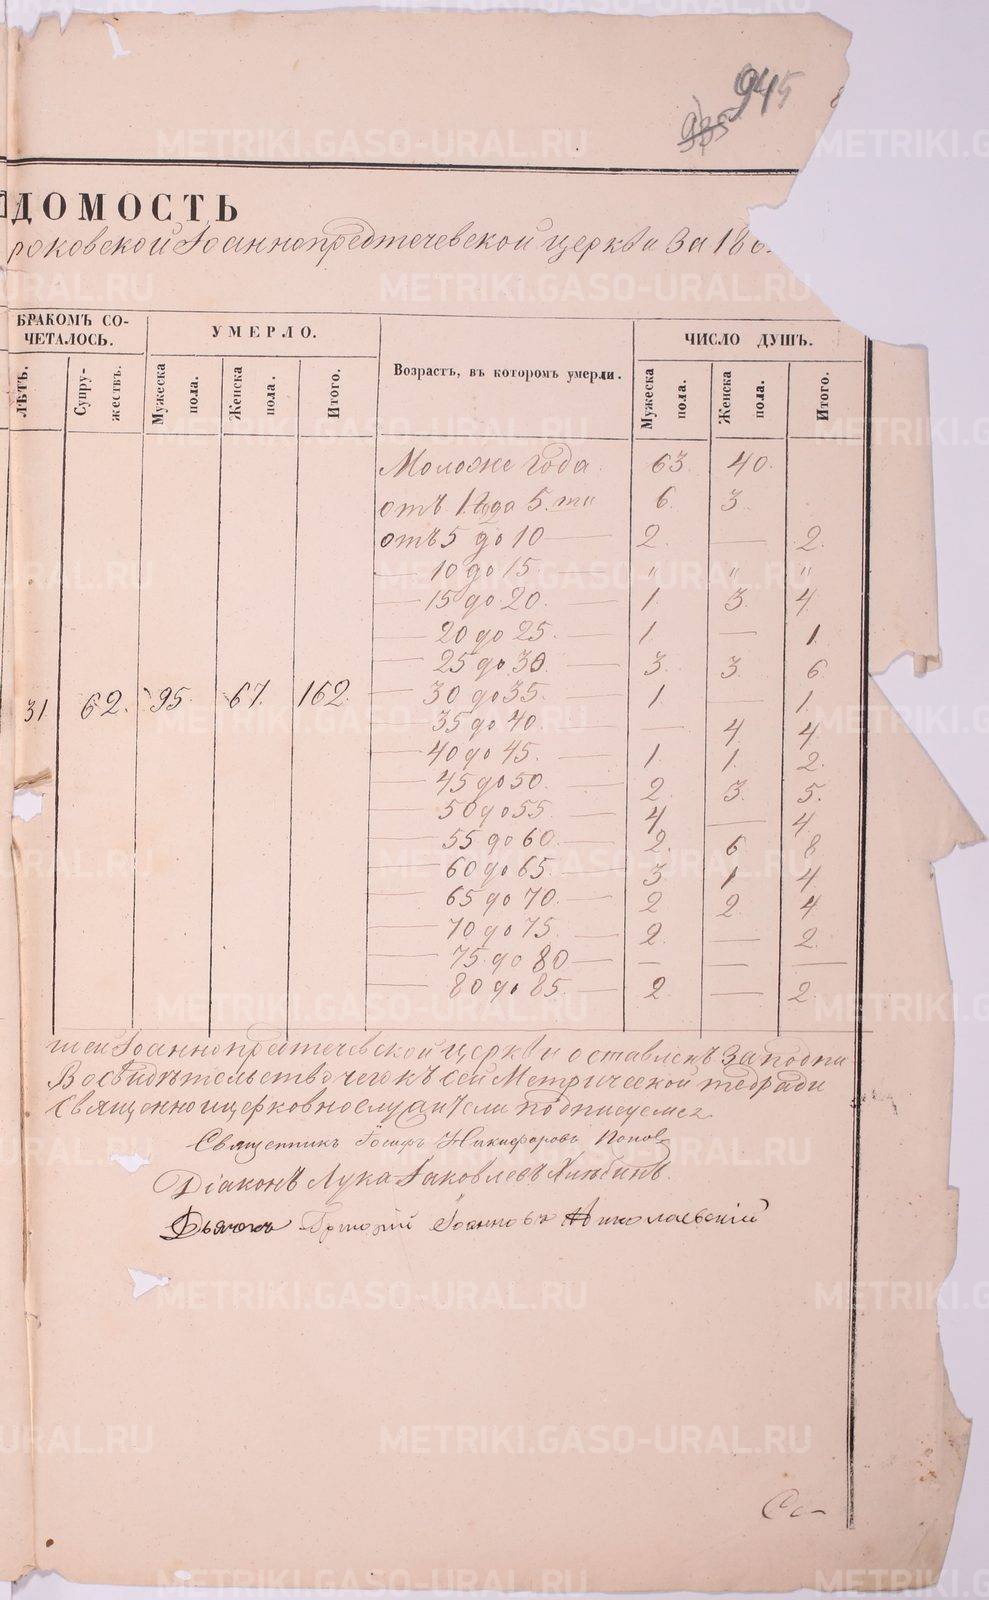 945
935
ДОМОСТЬ
роковской Іоаннопредтечевской церкви за 186
БРАКОМЪ СО-
ЧЕТАЛОСЬ.
УМЕРЛО.
Возрастъ, въ которомъ умерли.
ЧИСЛО ДУШЪ.
ЛѢТЪ.
Супру-
жествъ.
Мужеска
пола.
Женска
пола.
Итого.
Мужеска
пола.
Женска
пола.
Итого.
Моложе года 63. 40.
отъ 1 года 5.ти 6 3
отъ 5 до 10 — 2. — 2.
— 10 до 15. — " " "
— 15 до 20. — 1. 3. 4.
— 20 до 25. — 1. — 1.
— 25 до 30. — 3. 3. 6.
31 62. 95. 67. 162. — 30 до 35. — 1. — 1.
— 35 до 40. — — 4 4.
— 40 до 45. — 1. 1. 2.
— 45 до 50. — 2. 3. 5.
— 50 до 55 — 4. — 4.
— 55 до 60. — 2. 6 8
— 60 до 65. — 3. 1 4
— 65 до 70. — 2 2. 4
— 70 до 75. — 2. — 2.
— 75. до 80 — — — —
— 80 до 85. — 2 — 2
шей Іоаннопредтечевской церкви оставленъ за подпи
Во свидѣтельство чего къ сей Метрической тетради
Священно и церковнослужители подписуемся
Священникъ Іосифъ Никифоровъ Попов
Діаконъ Лука Іаковлевъ Хлѣбинъ.
Дьячекъ Григорій Іоанновъ Николаевскій
Со-
METRIKI.GASO-URAL.RU